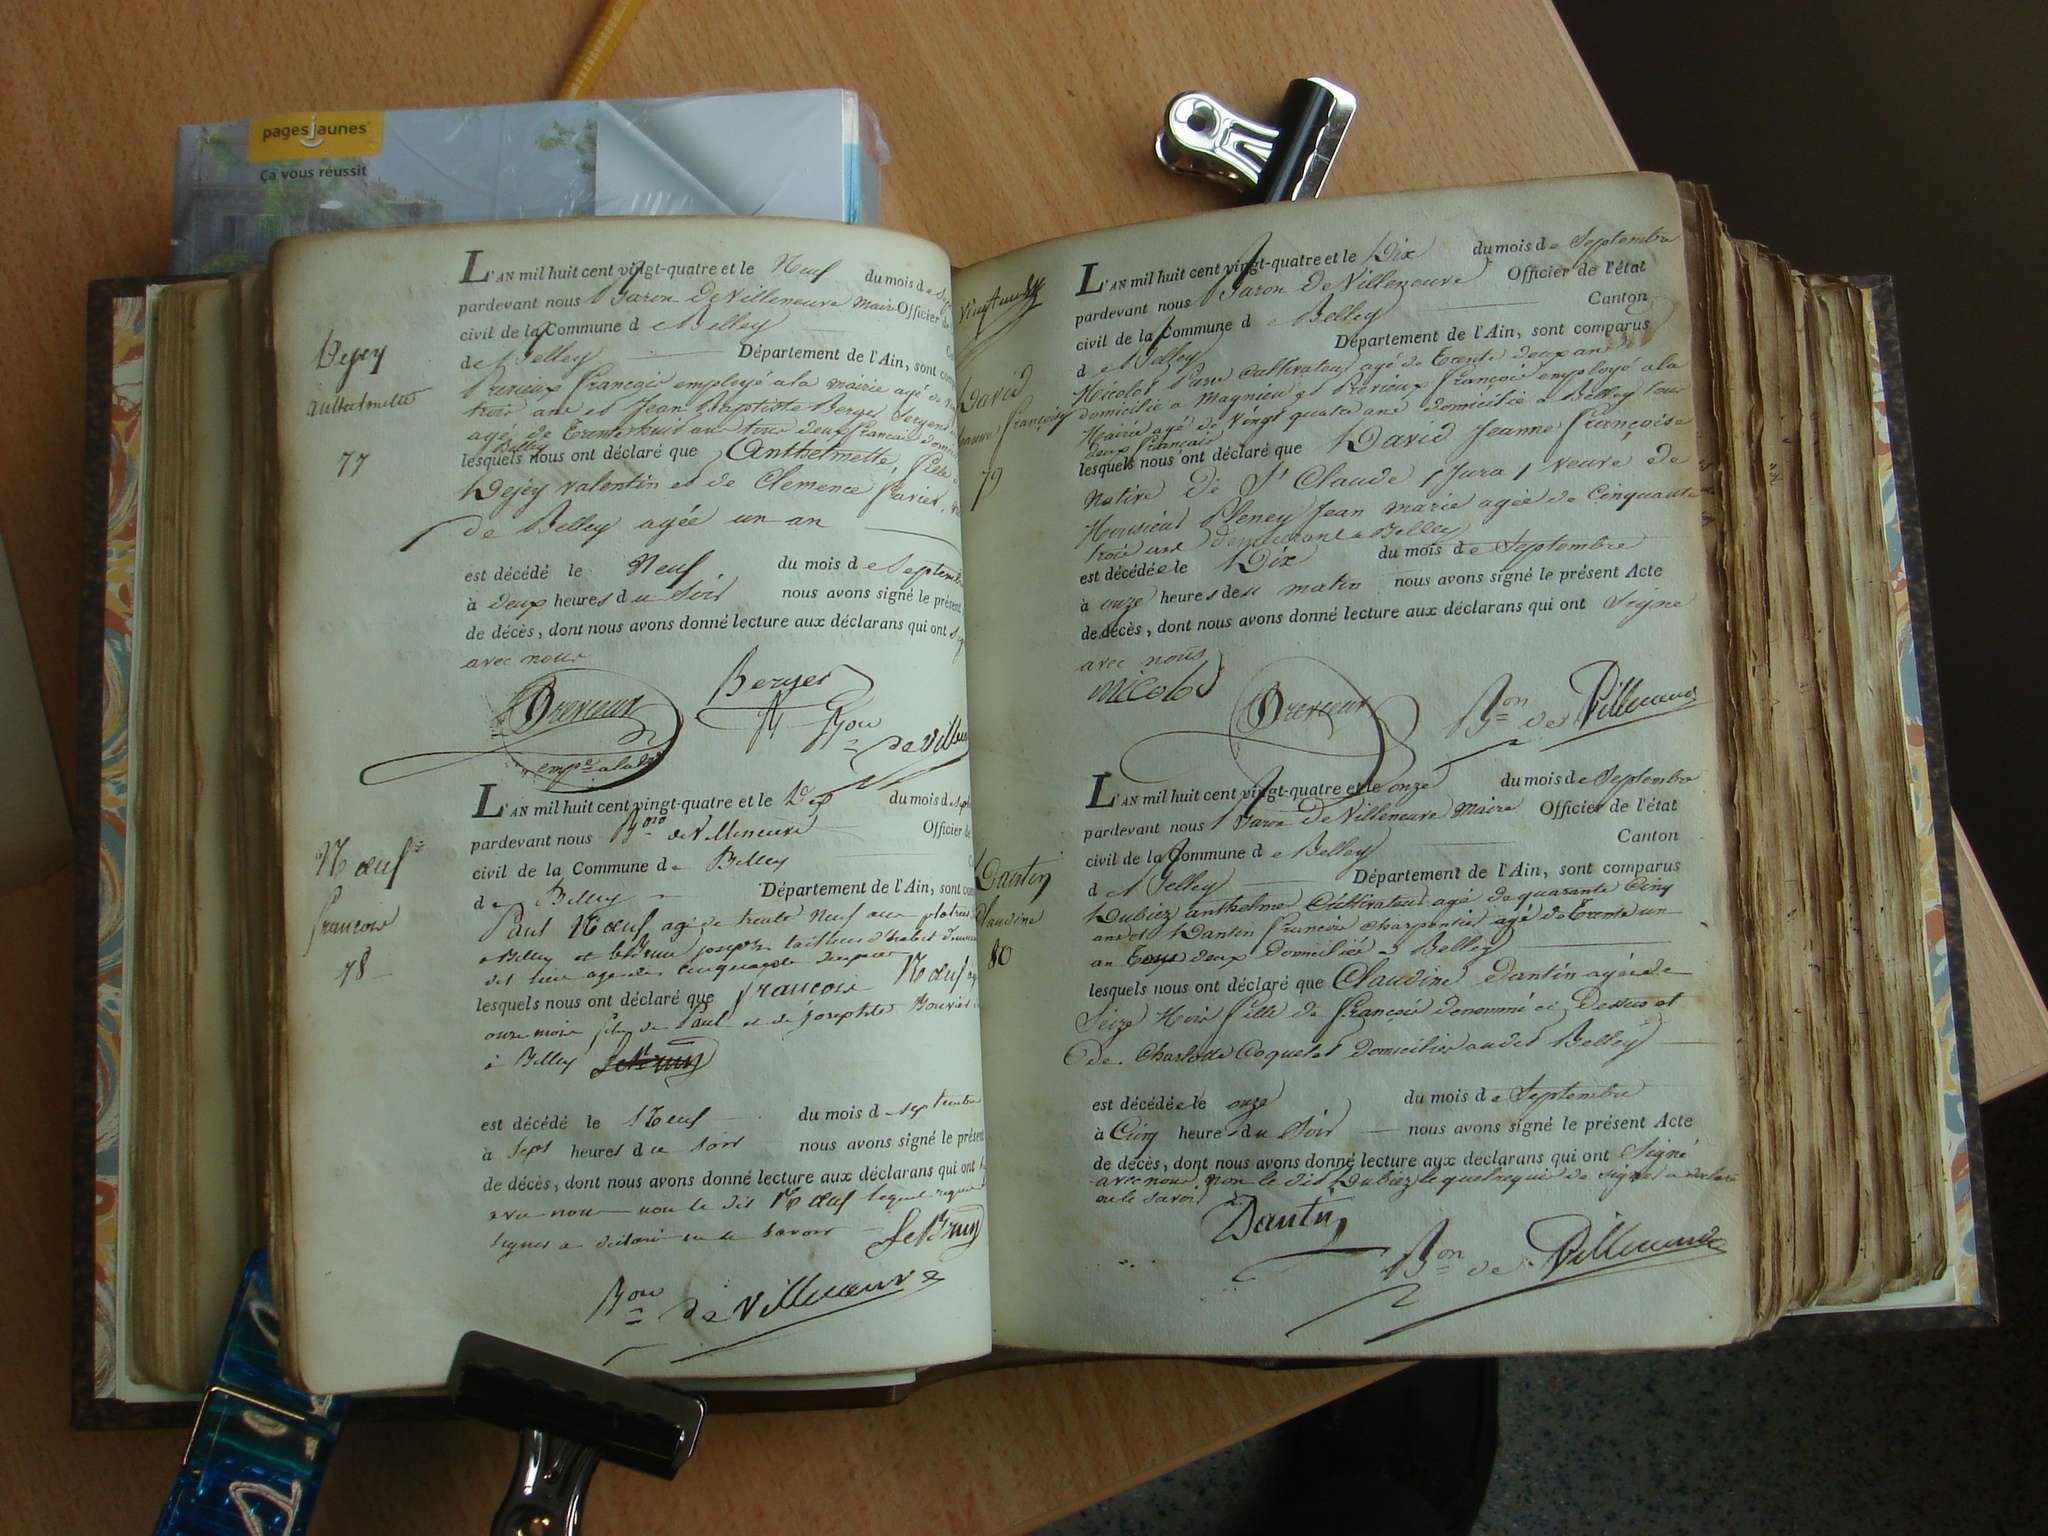 pagesjaunes
Ça vous réussit
Dejey
Anthelmette
77
L'AN mil huit cent vingt-quatre et le Neuf du mois de
pardevant nous Baron DeVilleneuve maire Officier de
civil de la Commune de Belley
de Belley Département de l'Ain, sont
Prerieux françois employé a la mairie agé de
trois ans et Jean Baptiste Berger Sergent
agé de Trente huit ans tous deux francais
Belley
lesquels nous ont déclaré que Anthelmette, fille
Dejey valentin et de Clemence
de Belley agée un an
est décédé le Neuf du mois de Septembre
à deux heures du Soir nous avons signé le présent
de décès, dont nous avons donné lecture aux déclarans qui ont
avec nous
Berger
Bon de Ville
Nœuf
francois
78
L'AN mil huit cent vingt-quatre et le Dix du mois de
pardevant nous Bon de Villeneuve Officier de
civil de la Commune de Belley
de Belley Département de l'Ain, sont
Paul Nœuf agé de trente Neuf ans
a Belley et joseph tailleur d'habit
lesquels nous ont déclaré que francois Nœuf
onze mois fils de Paul et de josephte Bouvier
à Belley LeBrun
est décédé le Neuf du mois de septembre
à sept heures du soir nous avons signé le présent
de décès, dont nous avons donné lecture aux déclarans qui ont
avec nous non le dit Nœuf lequel
signer a déclaré ne le savoir LeBrun
Bon de Villeneuve
David
jeanne françoise
79
L'AN mil huit cent vingt-quatre et le Dix du mois de Septembre
pardevant nous Baron DeVilleneuve Officier de l'état
civil de la Commune de Belley Canton
de Belley Département de l'Ain, sont comparus
Nicolot cultivateur agé de Trente deux ans
domicilié a Magnieu et Prerieux françois employé a la
Mairie agé de Vingt quatre ans domicilié a Belley tous
deux français
lesquels nous ont déclaré que David Jeanne françoise
Native de St Claude (Jura) veuve de
Monsieur Pleney Jean marie agée de Cinquante
trois ans demeurant a Belley
est décédée le Dix du mois de Septembre
à onze heures du matin nous avons signé le présent Acte
de décès, dont nous avons donné lecture aux déclarans qui ont Signé
avec nous
Bon de Villeneuve
Dantin
Claudine
80
L'AN mil huit cent vingt-quatre et le onze du mois de Septembre
pardevant nous Baron DeVilleneuve Maire Officier de l'état
civil de la Commune de Belley Canton
de Belley Département de l'Ain, sont comparus
Dubiez anthelme Cultivateur agé de quarante Cinq
ans et Dantin françois charpentier agé de Trente un
an Tous deux Domiciliés a Belley
lesquels nous ont déclaré que Claudine Dantin agée de
Seize Mois fille de françois denommé ci Dessus et
de Charlotte Coquelet domiciliés audit Belley
est décédée le onze du mois de Septembre
à Cinq heures du Soir nous avons signé le présent Acte
de décès, dont nous avons donné lecture aux déclarans qui ont Signé
avec nous non le dit Dubiez lequel requi de signer a declaré
ne le Savoir
Dantin
Bon de Villeneuve